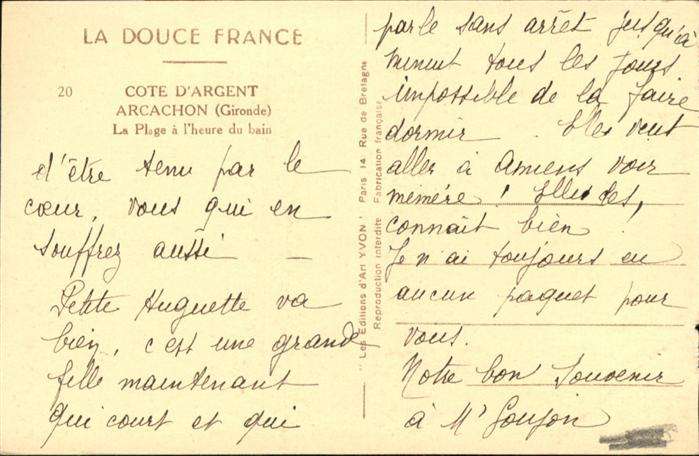 LA DOUCE FRANCE
20
COTE D'ARGENT
ARCACHON (Gironde)
La Plage à l'heure du bain
d'être tenu par le
cœur, vous qui en
souffrez aussi —
Petite Huguette va
bien, c'est une grande
fille maintenant
qui court et qui
"Les Editions d'Art YVON" Paris 14 Rue de Bretagne
Reproduction interdite Fabrication française
parle sans arrêt jusqu'à
minuit tous les jours
impossible de la faire
dormir. Elle veut
aller à Amiens voir
mémère! Elle les,
connait bien
Je n'ai toujours eu
aucun paquet pour
vous.
Notre bon souvenir
à Mr Goujon